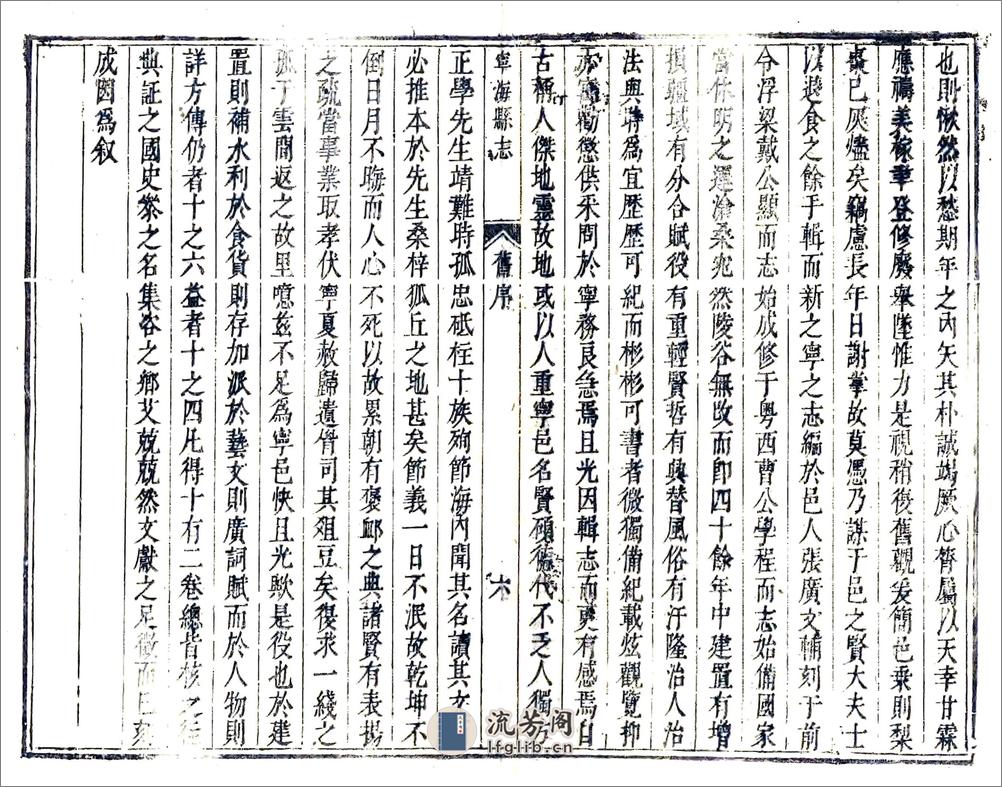 也則愀然以愁期年之內矢其朴誠竭厥心膂屬以天幸甘霖
應禱美稼聿登修廢舉墜惟力是視稍復舊觀爰簡邑乗則梨
棗已灰燼矣竊慮長年日謝掌故莫憑乃謀于邑之賢大夫士
以退食之餘手輯而新之寧之志編於邑人張廣文輔刻于前
令浮梁戴公顯而志始成修于粤西曹公學程而志始備國家
當休明之運滄桑宛然陵谷無改而即四十餘年中建置有增
損疆域有分合賦役有重輕賢哲有興替風俗有汙隆治人治
法與時爲宜歷歷可紀而彬彬可書者微獨備紀載炫觀覽抑
亦寓勸懲供采問於寧務良急焉且光因輯志而更有感焉自
古稱人傑地靈故地或以人重寧邑名賢碩德代不乏人獨方
寧海縣志 舊序 六
正學先生靖難時孤忠砥柱十族殉節海內聞其名讀其文
必推本於先生桑梓狐丘之地甚矣節義一日不泯故乾坤不
倒日月不晦而人心不死以故累朝有褒䘏之典諸賢有表揚
之疏當事業取孝伏寧夏赦歸遺脋司其俎豆矣復求一綫之
孤于雲間返之故里噫兹不足爲寧邑快且光歟是役也於建
置則補水利於食貨則存加派於藝文則廣詞賦而於人物則
詳方傳仍者十之六益者十之四凡得十有二卷總皆核之
典証之國史叅之名集咨之鄉艾兢兢然文獻之足徵而已刻
成因爲叙
流芳阁
lfglib.cn